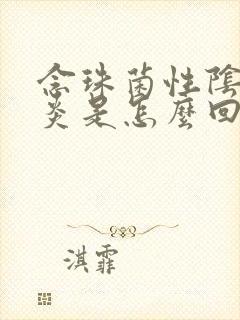 念珠菌性陰
炎是怎麼回
淇霏